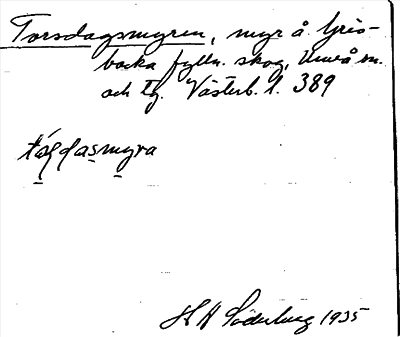 Torsdagsmyren, myr å Gris-
backa fylln. skog, Umeå sn.
och tg. Västerb. l. 389
tásdasmyra
H Söderberg 1935